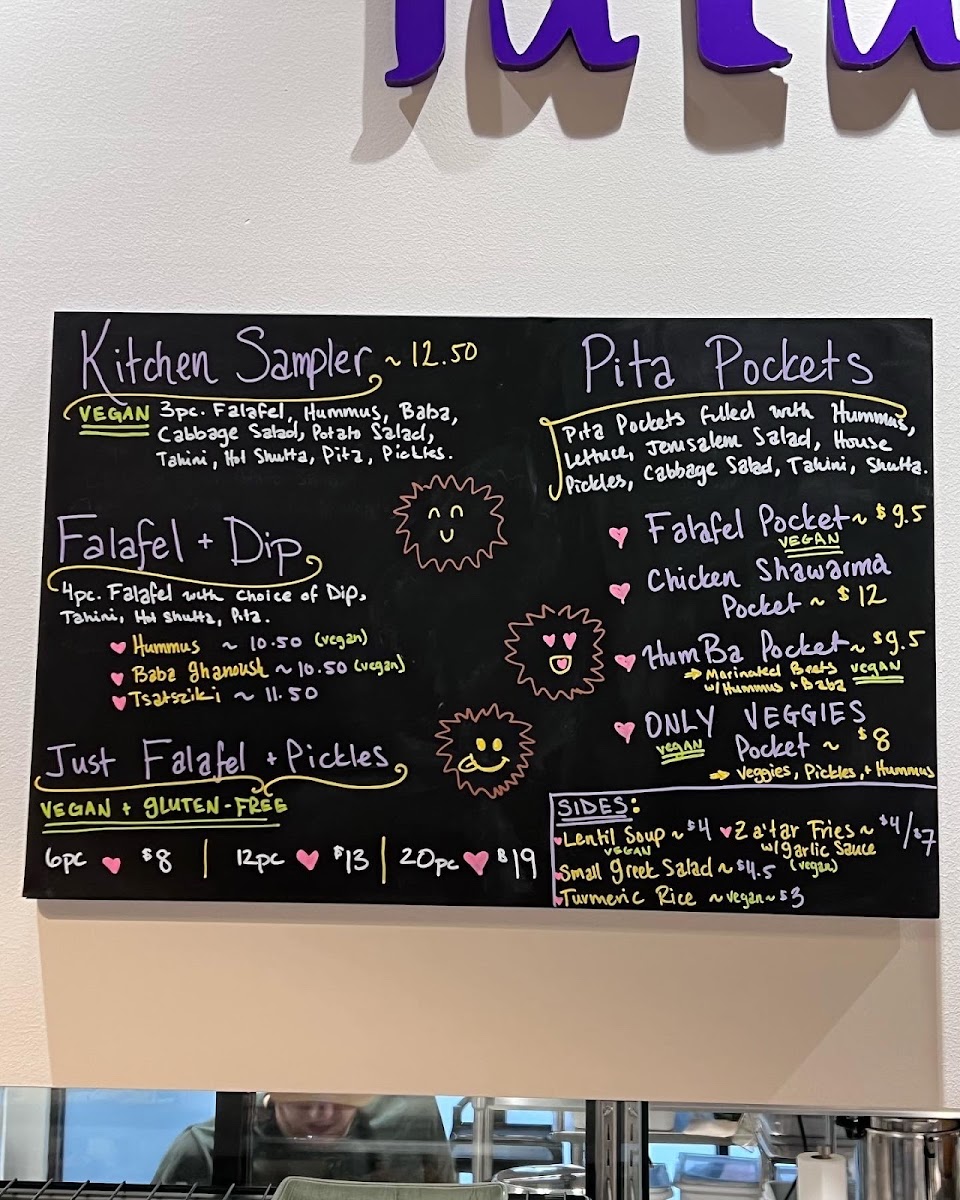 Kitchen Sampler ~ 12.50
VEGAN 3pc. Falafel, Hummus, Baba,
Cabbage Salad, Potato Salad,
Tahini, Hot Shutta, Pita, Pickles.
Falafel + Dip
4pc. Falafel with choice of Dip,
Tahini, Hot shutta, Pita.
Hummus ~ 10.50 (vegan)
Baba ghanoush ~ 10.50 (vegan)
Tsatsziki ~ 11.50
Just Falafel + Pickles
VEGAN + GLUTEN-FREE
6pc $8 | 12pc $13 | 20pc $19
Pita Pockets
Pita Pockets filled with Hummus,
lettuce, Jerusalem Salad, House
Pickles, Cabbage Salad, Tahini, Shutta.
Falafel Pocket ~ $9.5
VEGAN
Chicken Shawarma
Pocket ~ $12
HumBa Pocket ~ $9.5
→ Marinated Beets VEGAN
w/Hummus + Baba
ONLY VEGGIES
vegan Pocket ~ $8
→ Veggies, Pickles, + Hummus
SIDES:
Lentil Soup ~ $4
VEGAN
Za'tar Fries ~ $4/$7
w/garlic Sauce
(vegan)
Small greek Salad ~ $4.5
Turmeric Rice ~ vegan ~ $3